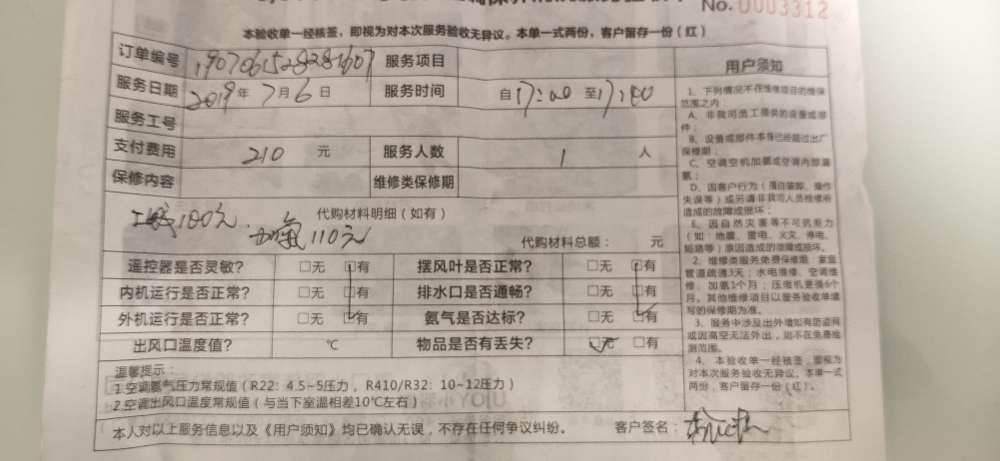 No. 0003312
本验收单一经核签，即视为对本次服务验收无异议。本单一式两份，客户留存一份（红）
订单编号 服务项目
服务日期 2019年7月6日 服务时间 自17:00至17:00
服务工号
支付费用 210 元 服务人数 1 人
保修内容 维修类保修期
代购材料明细（如有）
100元 加氟110元
代购材料总额： 元
遥控器是否灵敏？ □无 □有 摆风叶是否正常？ □无 □有
内机运行是否正常？ □无 □有 排水口是否通畅？ □无 □有
外机运行是否正常？ □无 □有 氨气是否达标？ □无 □有
出风口温度值？ ℃ 物品是否有丢失？ 无 □有
温馨提示：
1.空调氨气压力常规值（R22：4.5~5压力，R410/R32：10~12压力）
2.空调出风口温度常规值（与当下室温相差10℃左右）
本人对以上服务信息以及《用户须知》均已确认无误，不存在任何争议纠纷。 客户签名：
用户须知
1、下列情况不在维修项目的维保
范围之内：
A、非我司员工提供的设备或部
件；
B、设备或部件本身已经超过出厂
保修期；
C、空调空机加氨或空调内部漏
氨；
D、因客户行为（擅自装卸、操作
失误等）或另请非我司人员维修所
造成的故障或损坏；
E、因自然灾害等不可抗拒力
（如：地震、雷电、火灾、停电、
短路等）原因造成的故障或损坏。
2、维修类服务免费保修期：家庭
管道疏通3天；水电维修、空调维
修、加氨1个月；压缩机更换6个
月。其他维修项目以服务验收单填
写的保修期为准。
3、服务中涉及出外墙如有防盗网
或因高空无法外出，则不在免费检
测范围。
4、本验收单一经核签，即视为
对本次服务验收无异议。本单一式
两份，客户留存一份（红）。